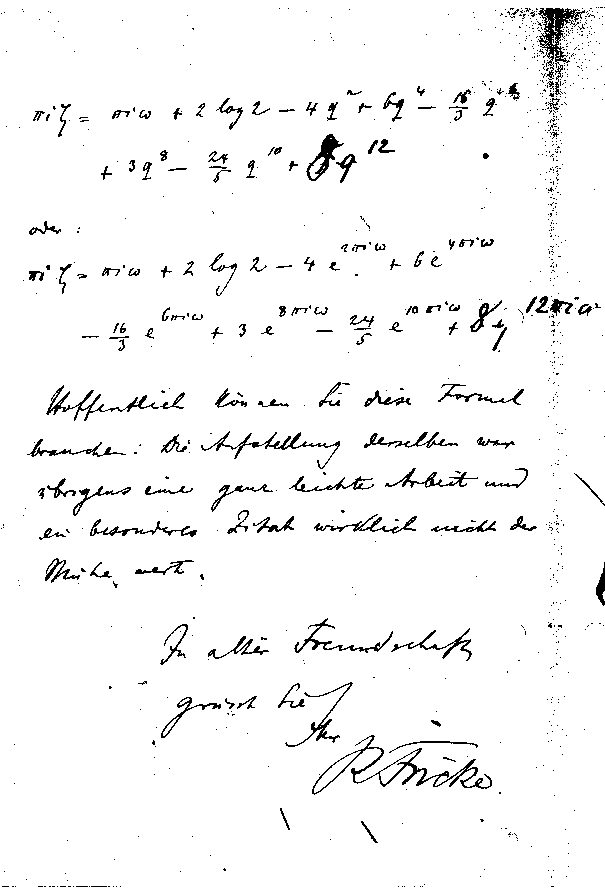 πiζ = πiω + 2 log 2 − 4q² + 6q⁴ − 16/3 q⁶
+ 3q⁸ − 24/5 q¹⁰ + 8q¹²
oder:
πiζ = πiω + 2 log 2 − 4e^{2πiω} + 6e^{4πiω}
− 16/3 e^{6πiω} + 3e^{8πiω} − 24/5 e^{10πiω} + 8 12πiω
Hoffentlich können Sie diese Formel
brauchen: Die Aufstellung derselben war
übrigens eine ganz leichte Arbeit und
ein besonderes Zitat wirklich nicht der
Mühe wert.
In alter Freundschaft
grüsst Sie
Ihr
R Fricke.